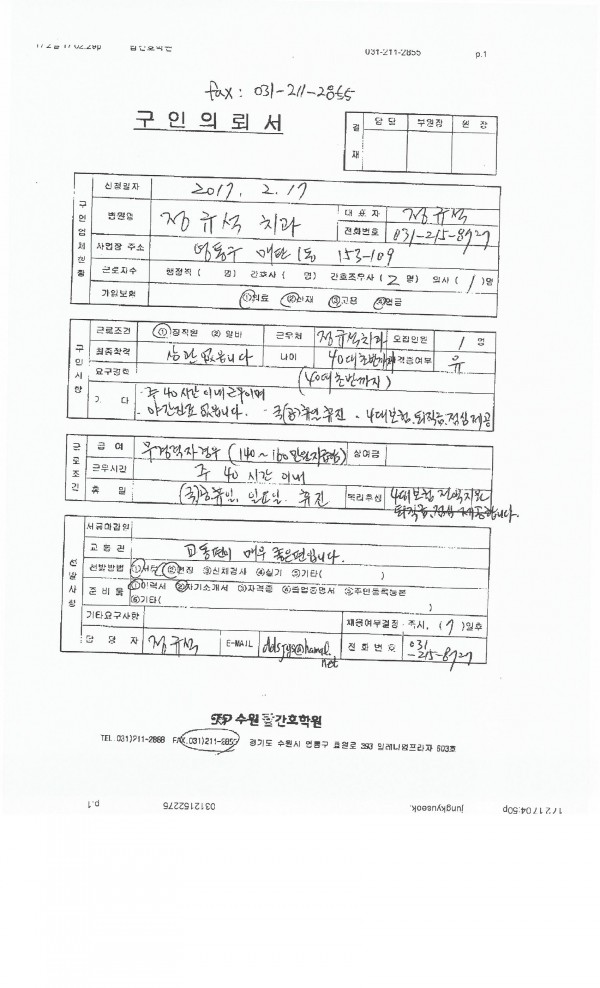 031-211-2855 p.1
fax : 031-211-2855
구 인 의 뢰 서
결재 담당 부원장 원장
구인업체현황
신청일자 2017. 2. 17
병원명 정규석 치과 대표자 정규석
전화번호 031-215-8727
사업장 주소 영통구 매탄1동 153-109
근로자수 행정직 ( 명) 간호사 ( 명) 간호조무사 ( 2 명) 의사 ( 1 )명
가입보험 ①의료 ②산재 ③고용 ④연금
구인사항
근로조건 ① 정직원 ② 알바 근무처 정규석치과 모집인원 1 명
최종학력 상관없습니다 나이 40대초반까지 자격증여부 유
요구경력 (40대초반까지)
기 타 - 주 40시간 이내근무이며
- 야간진료 없습니다. - 국(공)휴일 휴진 - 4대보험, 퇴직금, 점심제공
근로조건
급 여 무경력자경우 (140~160만원지급함) 상여금
근무시간 주 40 시간 이내
휴 일 (국)공휴일, 일요일 휴진 복리후생 4대보험 전액지원
퇴직금, 점심 제공합니다.
선발사항
서류마감일
교통편 교통편이 매우 좋은편입니다.
선발방법 ①서류 ②면접 ③신체검사 ④실기 ⑤기타( )
준비물 ①이력서 ②자기소개서 ③자격증 ④졸업증명서 ⑤주민등록등본
⑥기타( )
기타요구사항 채용여부결정 - 즉시, ( 7 )일후
담 당 자 정규석 E-MAIL ddsjys@hanmail.net 전화번호 031-215-8727
수원 간호학원
TEL. 031)211-2868 FAX. 031)211-2855 경기도 수원시 영통구 효원로 393 밀레니엄프라자 603호
17 2 17 04:50p jungkyuseok. 0312152275 p.1